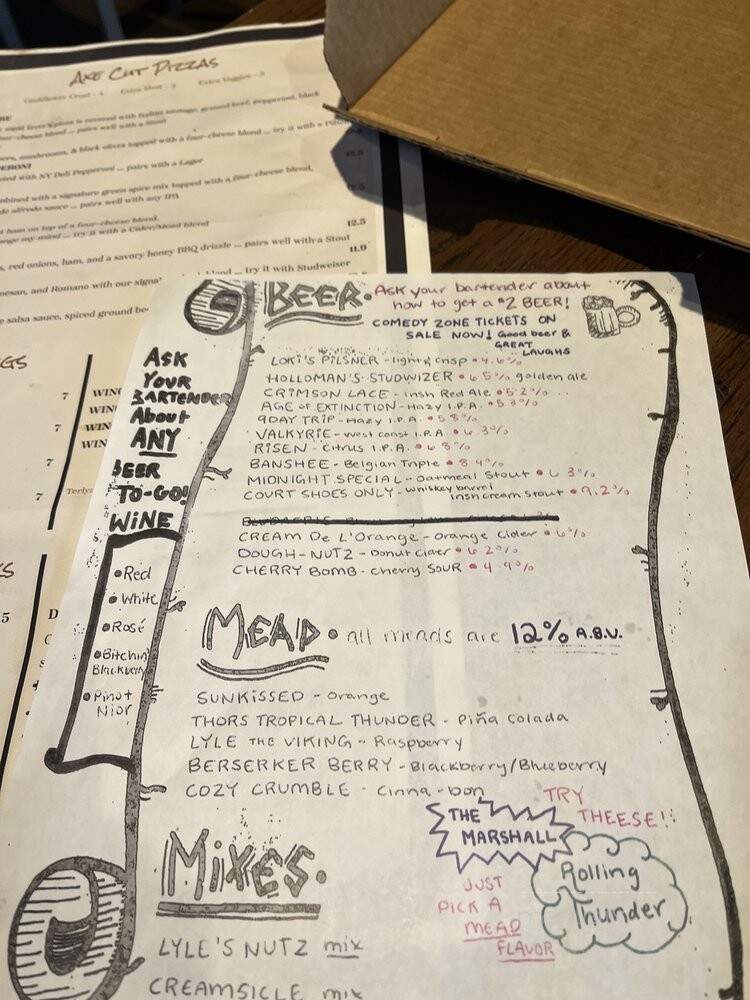 AXE CUT PIZZAS
Cauliflower Crust - 4 Extra Meat - 3 Extra Veggies - 2
is covered with Italian sausage, ground beef, pepperoni, black
four-cheese blend ... pairs well with a
mushrooms, & black olives topped with a four-cheese blend ... try it with a
PERONI
with NY Deli Pepperoni ... pairs with a Lager
combined with a signature green spice mix topped with a four-cheese blend,
alfredo sauce ... pairs well with any IPA
ham on top of a four-cheese blend.
change my mind ... try it with a Cider/Mead blend
12.5
, red onions, ham, and a savory honey BBQ drizzle ... pairs well with a Stout
11.9
mesan, and Romano with our signa
blend ... try it with Studweiser
salsa sauce, spiced ground be
GS
7 WING
7 WIN
7 WIN
7
KS
5 D
BEER. Ask your bartender about
how to get a $2 BEER!
COMEDY ZONE TICKETS ON
SALE NOW! Good beer &
GREAT
LAUGHS
LOKI'S PILSNER - light & crisp • 4.6%
HOLLOMAN'S STUDWIZER • 6.5% golden ale
CRIMSON LACE - Irish Red Ale • 5.2%
AGE OF EXTINCTION - Hazy I.P.A. • 5.3%
9DAY TRIP - Hazy I.P.A. • 5.8%
VALKYRIE - West Coast I.P.A. • 6.3%
RISEN - Citrus I.P.A. • 6.8%
BANSHEE - Belgian Triple • 8.4%
MIDNIGHT SPECIAL - Oatmeal Stout • 6.3%
COURT SHOES ONLY - whiskey barrel
Irish cream Stout • 9.2%
CREAM De L'Orange - Orange Cider • 6%
DOUGH-NUTZ - Donut Cider • 6.2%
CHERRY BOMB - Cherry SOUR • 4.9%
ASK
YOUR
BARTENDER
About
ANY
BEER
TO-GO!
WINE
• Red
• White
• Rosé
• Bitchin
Blackberry
• Pinot
Nior
MEAD. all meads are 12% A.B.V.
SUNKISSED - Orange
THORS TROPICAL THUNDER - Piña Colada
LYLE THE VIKING - Raspberry
BERSERKER BERRY - Blackberry/Blueberry
COZY CRUMBLE - Cinna-bon
TRY
THEESE!!
THE
MARSHALL
JUST
PICK A
MEAD
FLAVOR
Rolling
Thunder
MIXES.
LYLE'S NUTZ mix
CREAMSICLE mix